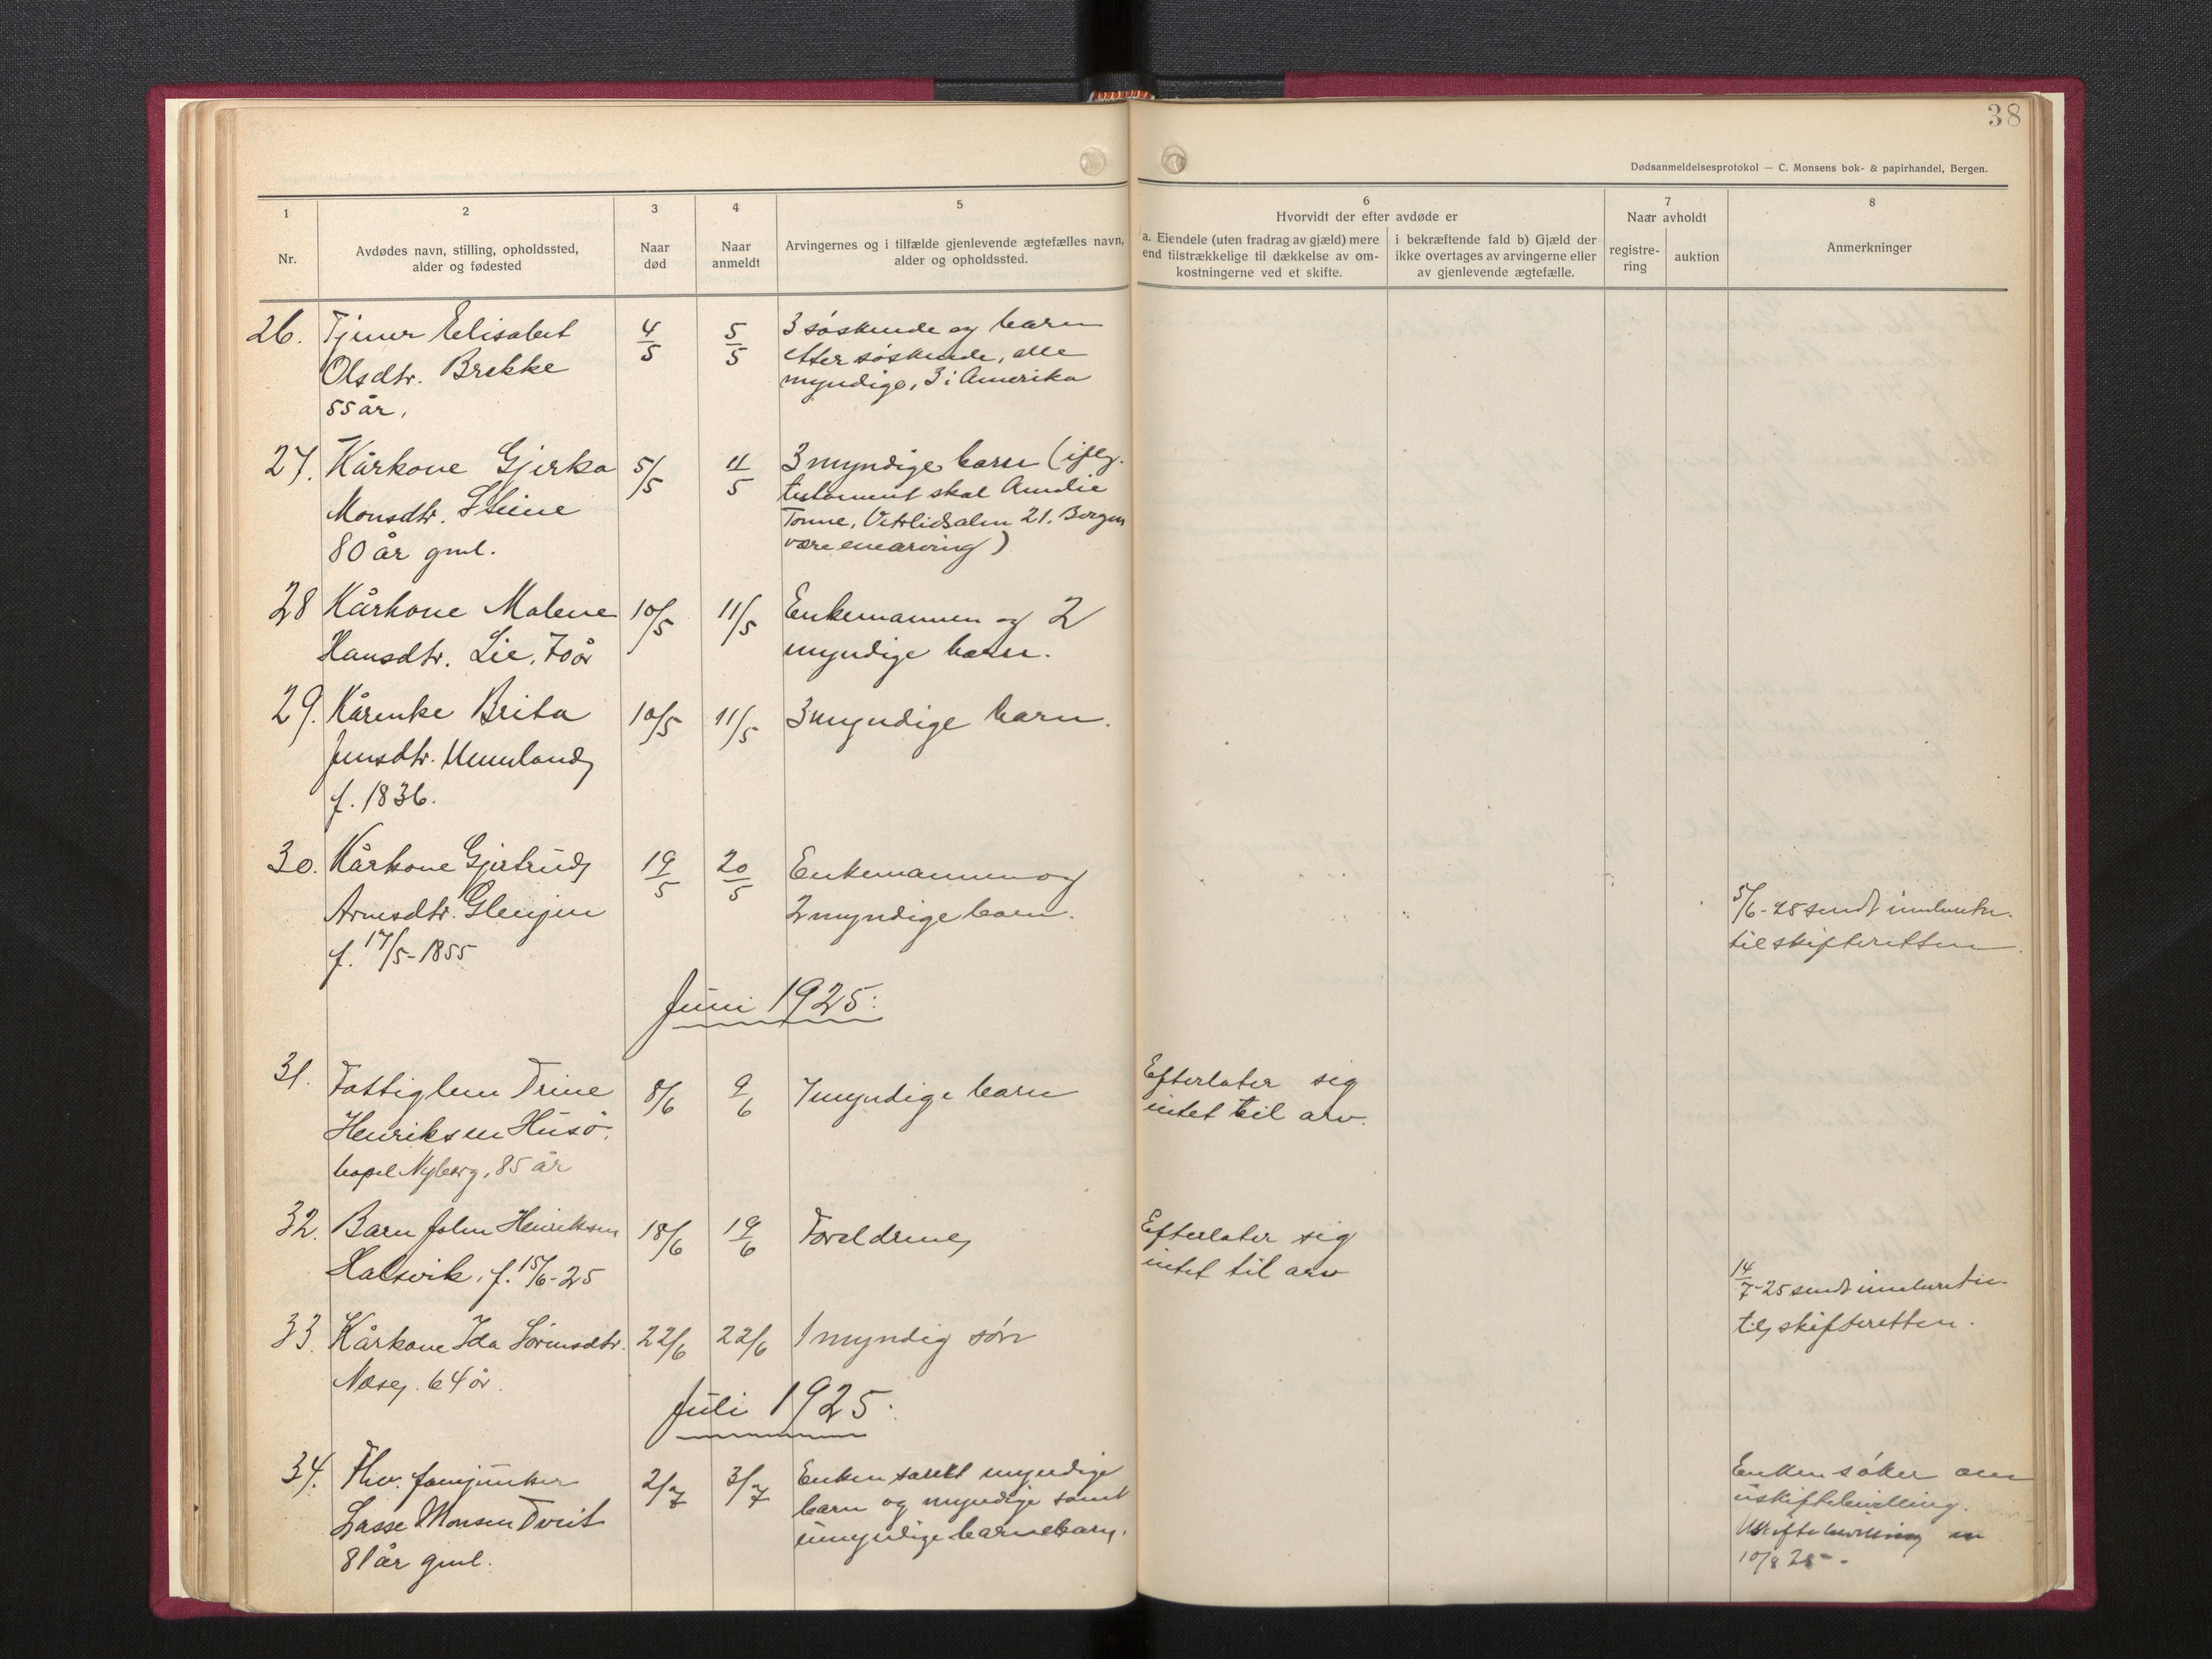 38
Dødsanmeldelsesprotokol — C. Monsens bok- & papirhandel, Bergen.
1
2
3
4
5
6
7
8
Nr.
Avdødes navn, stilling, opholdssted,
alder og fødested
Naar
død
Naar
anmeldt
Arvingernes og i tilfælde gjenlevende ægtefælles navn,
alder og opholdssted.
Hvorvidt der efter avdøde er
a. Eiendele (uten fradrag av gjæld) mere
end tilstrækkelige til dækkelse av om-
kostningerne ved et skifte.
i bekræftende fald b) Gjæld der
ikke overtages av arvingerne eller
av gjenlevende ægtefælle.
Naar avholdt
registre-
ring
auktion
Anmerkninger
26. Tjener Elisabet 4/5 5/5 3 søskende og barn
Olsdtr. Brekke etter søskende, alle
55 år. myndige, 3 i Amerika
27. Kårkone Gjerka 5/5 11/5 3 myndige barn (iflg.
Monsdtr. Steine testament skal Amalie
Tonne, Vetrlidsalm 21. Bergen
80 år gml. være enearving)
28 Kårkone Malene 10/5 11/5 Enkemannen og 2
Hansdtr. Lie. 70 år myndige barn.
29. Kårenke Brita 10/5 11/5 3 myndige barn.
Jensdtr.
f. 1836.
30. Kårkone Gjertrud 19/5 20/5 Enkemannen og
Arnesdtr. Glenjen 2 myndige barn. 5/6-25 sendt innberetn.
f. 17/5-1855 til skifteretten.
Juni 1925:
31. Fattiglem Trine 8/6 9/6 7 myndige barn Efterlater sig
Henriksen Husø. intet til arv.
bopel Nyborg, 85 år
32. Barn John Henriksen 18/6 19/6 Foreldrene Efterlater sig
Halsvik. f. 15/6-25 intet til arv
14/7-25 sendt innberetn.
33. Kårkone Ida Sørensdtr. 22/6 22/6 1 myndig søn til skifteretten.
Nese. 64 år.
Juli 1925:
34. Fhv. fanejunker 2/7 3/7 Enken samt myndige Enken søker om
Lasse Monsen Tveit barn og myndige samt uskiftebevilling.
umyndige barnebarn. Uskiftebevilling
81 år gml. 10/8 25.